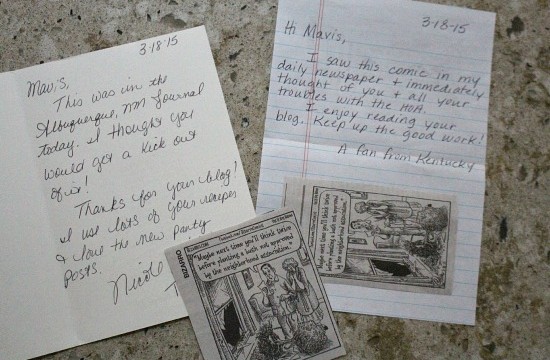 3-18-15
Mavis,
This was in the
Albuquerque, NM Journal
today. I thought you
would get a kick out
of it!
Thanks for your blog!
I use lots of your recipes
& love the new pantry
posts.
Nicole
3-18-15
Hi Mavis,
I saw this comic in my
daily newspaper + immediately
thought of you + all your
troubles with the HOA.
I enjoy reading your
blog. Keep up the good work!
A fan from Kentucky
BIZARRO
"Maybe next time you'll think twice
before planting a bush not approved
by the neighborhood association."
"Maybe next time you'll think twice
before planting a bush not approved
by the neighborhood association."